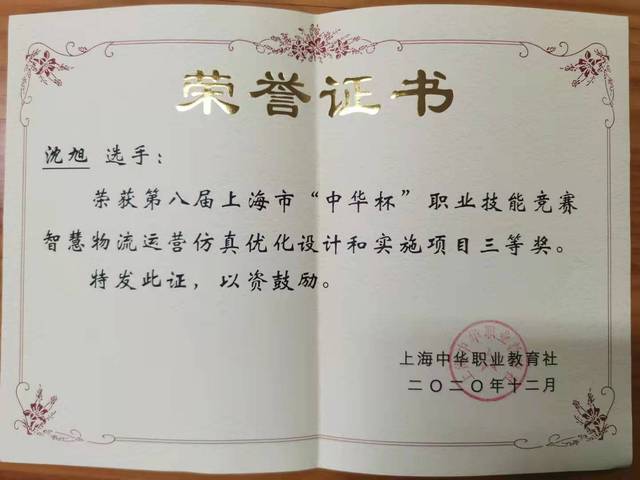 荣誉证书
沈旭 选手：
荣获第八届上海市“中华杯”职业技能竞赛
智慧物流运营仿真优化设计和实施项目三等奖。
特发此证，以资鼓励。
上海中华职业教育社
二〇二〇年十二月
上海中华职业教育社